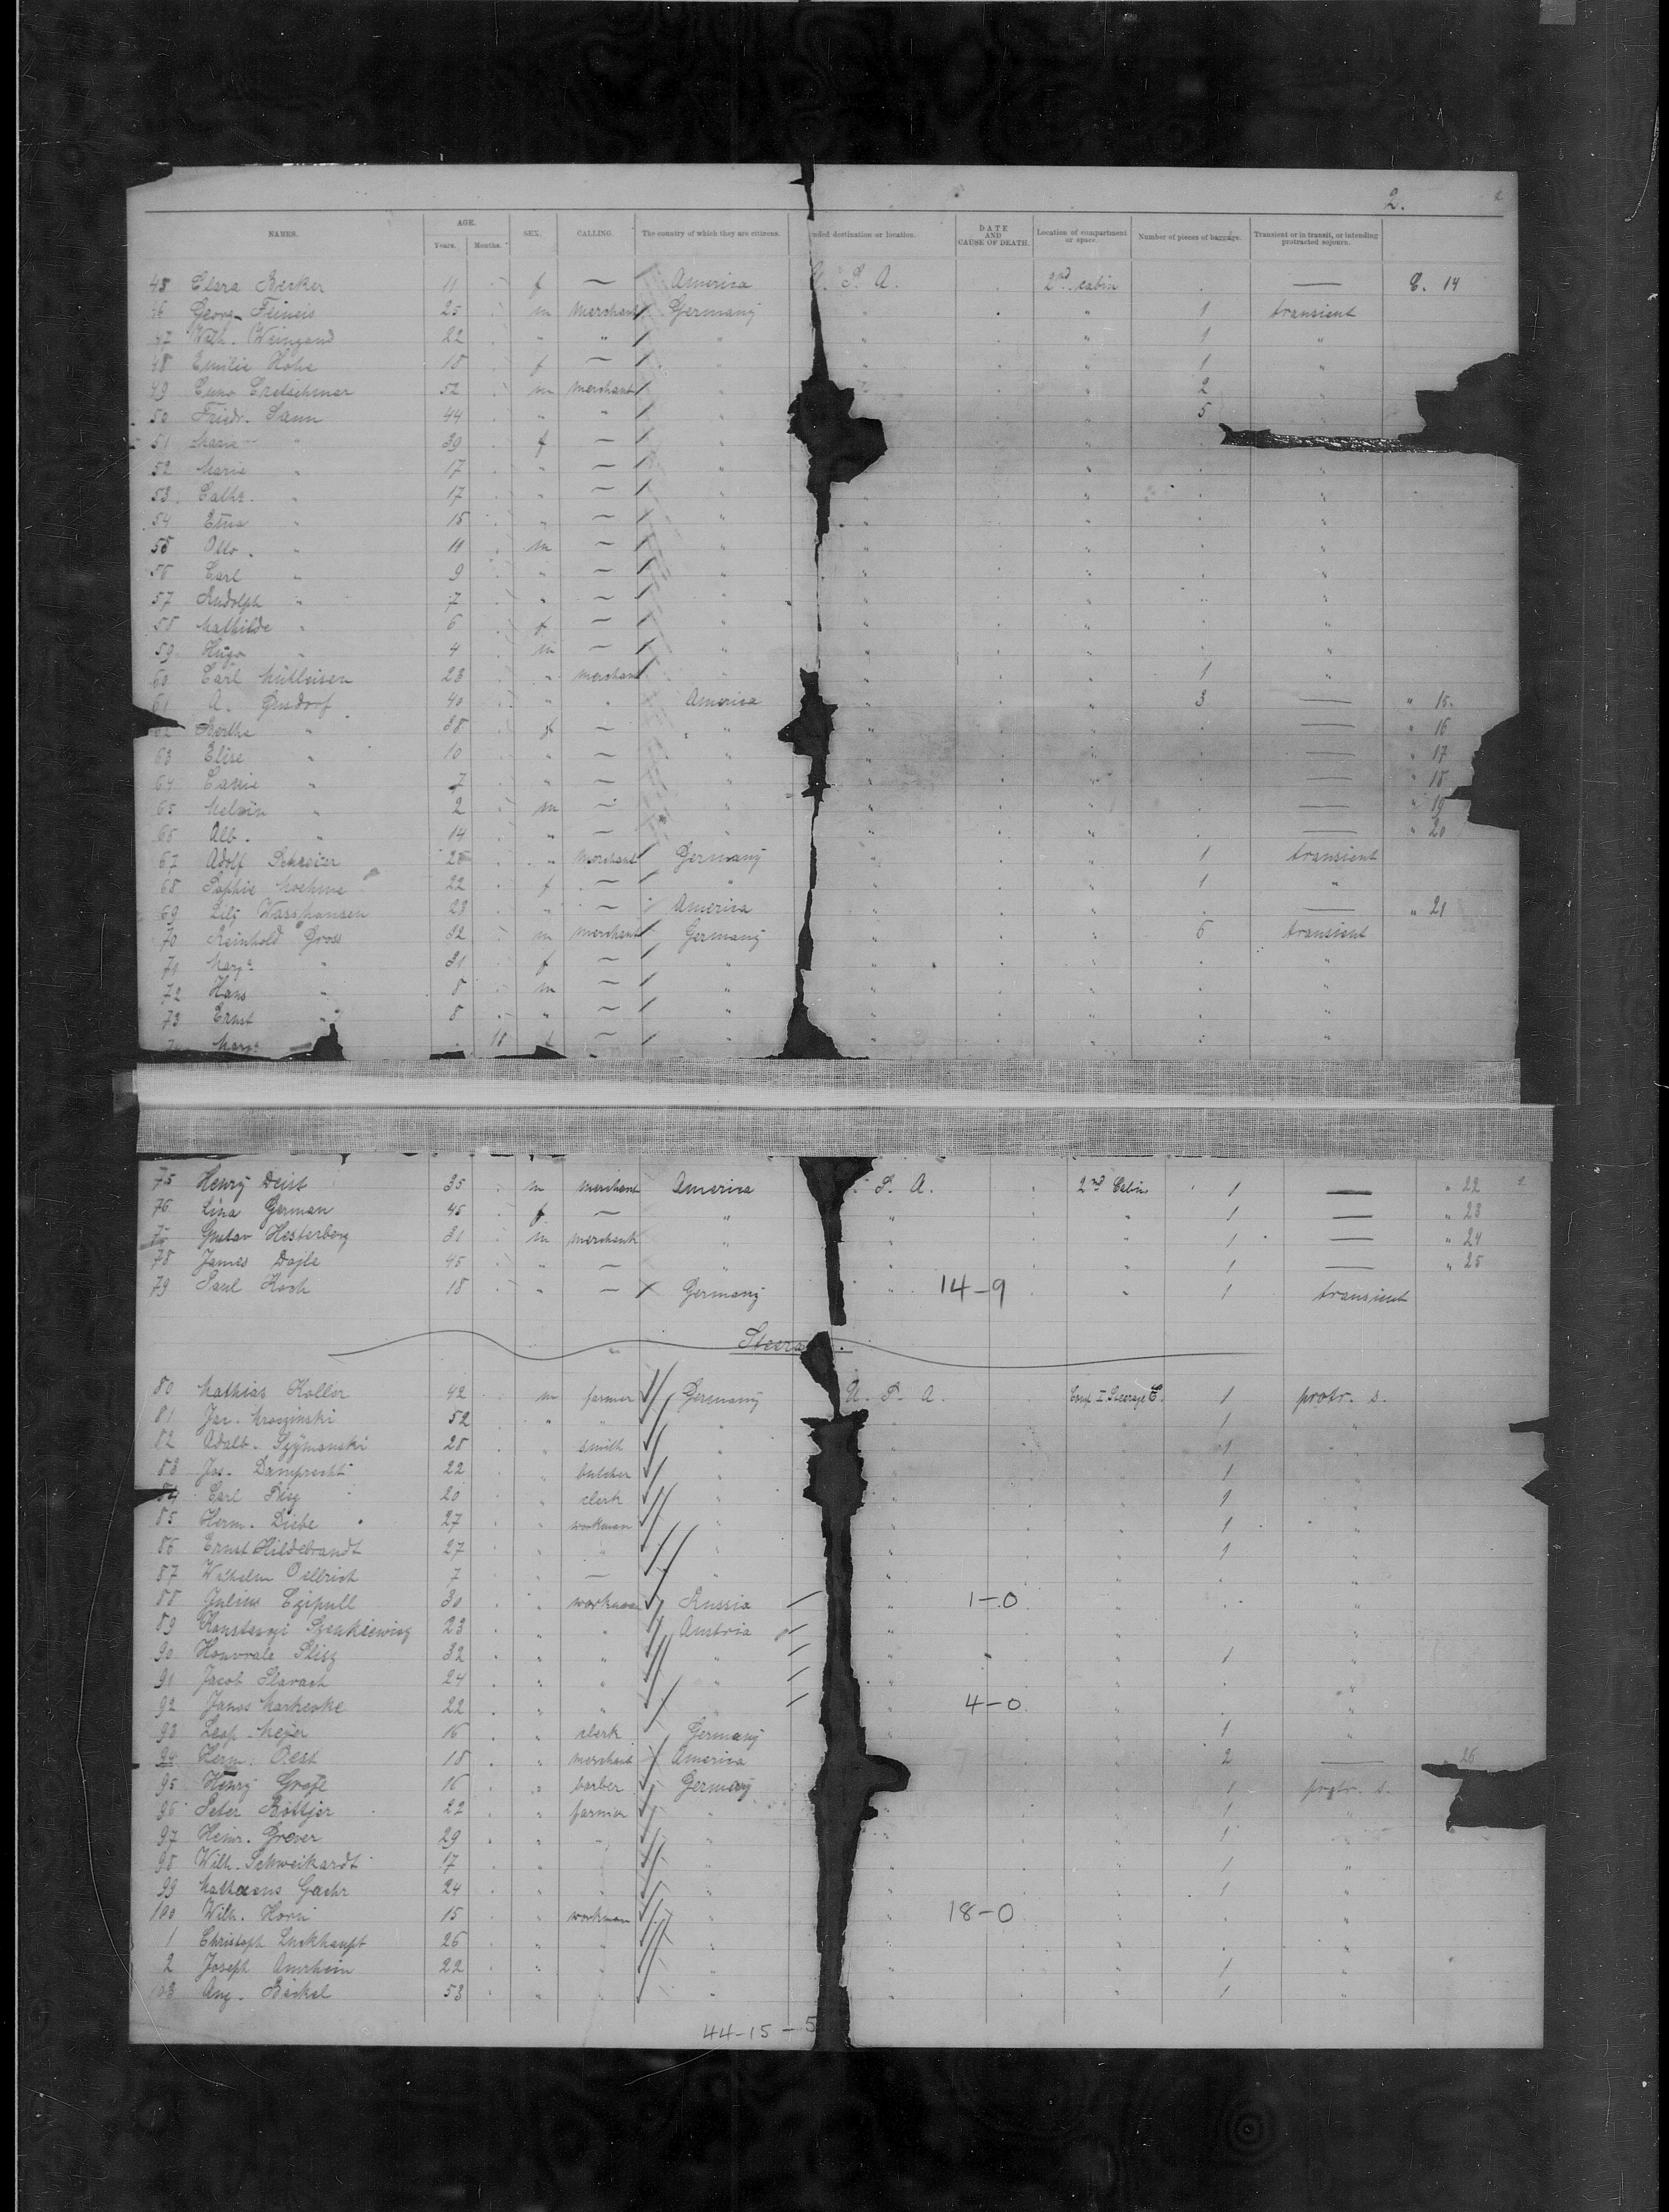 2.
NAMES. AGE. SEX. CALLING. The country of which they are citizens. nded destination or location. DATE AND CAUSE OF DEATH. Location of compartment or space. Number of pieces of baggage. Transient or in transit, or intending protracted sojourn.
Years. Months.
45 Clara Becker 11 f — America U. S. A. 2nd cabin — C. 14
46 Georg Feineis 25 m Merchant Germany " " 1 transient
47 Wilh. Weingand 22 " " " " " 1 "
48 Emilie Hohe 18 f — " " 1 "
49 Cuno Cretschmar 52 m merchant " " 2
50 Friedr. Sann 44 " " " " 5
51 Marie " 39 f — "
52 Marie " 17 " — " " "
53 Cath. " 17 " — " " "
54 Etna " 15 " — " " " "
55 Otto " 11 m — " " " "
56 Carl " 9 " — " " " "
57 Rudolph " 7 " — " " " "
58 Mathilde " 6 f — " " " "
59 Hugo " 4 m — " " " "
60 Carl Mühleisen 23 " merchant " " 1 "
61 A. Gusdorf 40 " " America " " 3 — " 15.
62 Bertha " 38 f — " " " — " 16
63 Elise " 10 " — " " " — " 17
64 Carrie " 7 " — " " " — " 18
65 Melvin " 2 m — " " " — " 19
66 Alb. " 14 " — " " " — " 20
67 Adolf Schreier 28 " Merchant Germany " " 1 transient
68 Sophie Moehme 22 f — " " " 1 "
69 Lily Wasshausen 23 " — America " " — " 21
70 Reinhold Gross 32 m merchant Germany " " 6 transient
71 Marg. " 31 f — " " " "
72 Hans " 8 m — " " " "
73 Ernst " 8 " — " " " "
74 Marg. 18 f — " " " "
75 Henry Deist 35 m merchant America S. A. 2nd Cabin 1 — " 22
76 Lina German 45 f — " " " 1 — " 23
77 Gustav Hesterberg 31 m merchant " " " 1 — " 24
78 James Dojle 45 " — " " " 1 — " 25
79 Paul Koch 18 " — Germany " 14-9 " 1 transient
Steera
80 Mathias Koller 42 m farmer Germany U. S. A. Comp I Steerage C. 1 protr. s.
81 Jac. Mroczinski 52 " " " " 1 "
82 Adalb. Szymanski 28 " smith " " 1 "
83 Jos. Damprecht 22 " butcher " " 1 "
84 Carl 20 " clerk " " 1 "
85 Herm. Diebe 27 " workman " " " 1 "
86 Ernst Hildebrandt 27 " " " " " 1 "
87 Wilhelm Oelbrich 7 " — " " " "
88 Julius Czepull 30 " workman Russia " 1-0 " "
89 Szenkiewicz 23 " " Austria " " "
90 Plisz 32 " " " " " 1 "
91 Jacob Slavach 24 " " " " " "
92 Janos 22 " " " " 4-0 " "
93 Leop. Mejer 16 " clerk Germany " " 1 "
94 Herm. Oest 18 " merchant America 2 — " 26
95 Henry Grofe 16 " barber Germany " 1 protr. s.
96 Peter Böttjer 22 " farmer " " " 1 "
97 Heinr. Grever 29 " " " " " 1 "
98 Wilh. Schweikardt 17 " " " " " 1 "
99 Mathaeus Gaehr 24 " " " " " 1 "
100 Wilh. Horn 15 " workman " " 18-0 " "
1 Christoph Luckhaupt 26 " " " " " "
2 Joseph Amrhein 22 " " " " " 1 "
103 Aug. Beickel 53 " " " " " 1 "
44-15-5